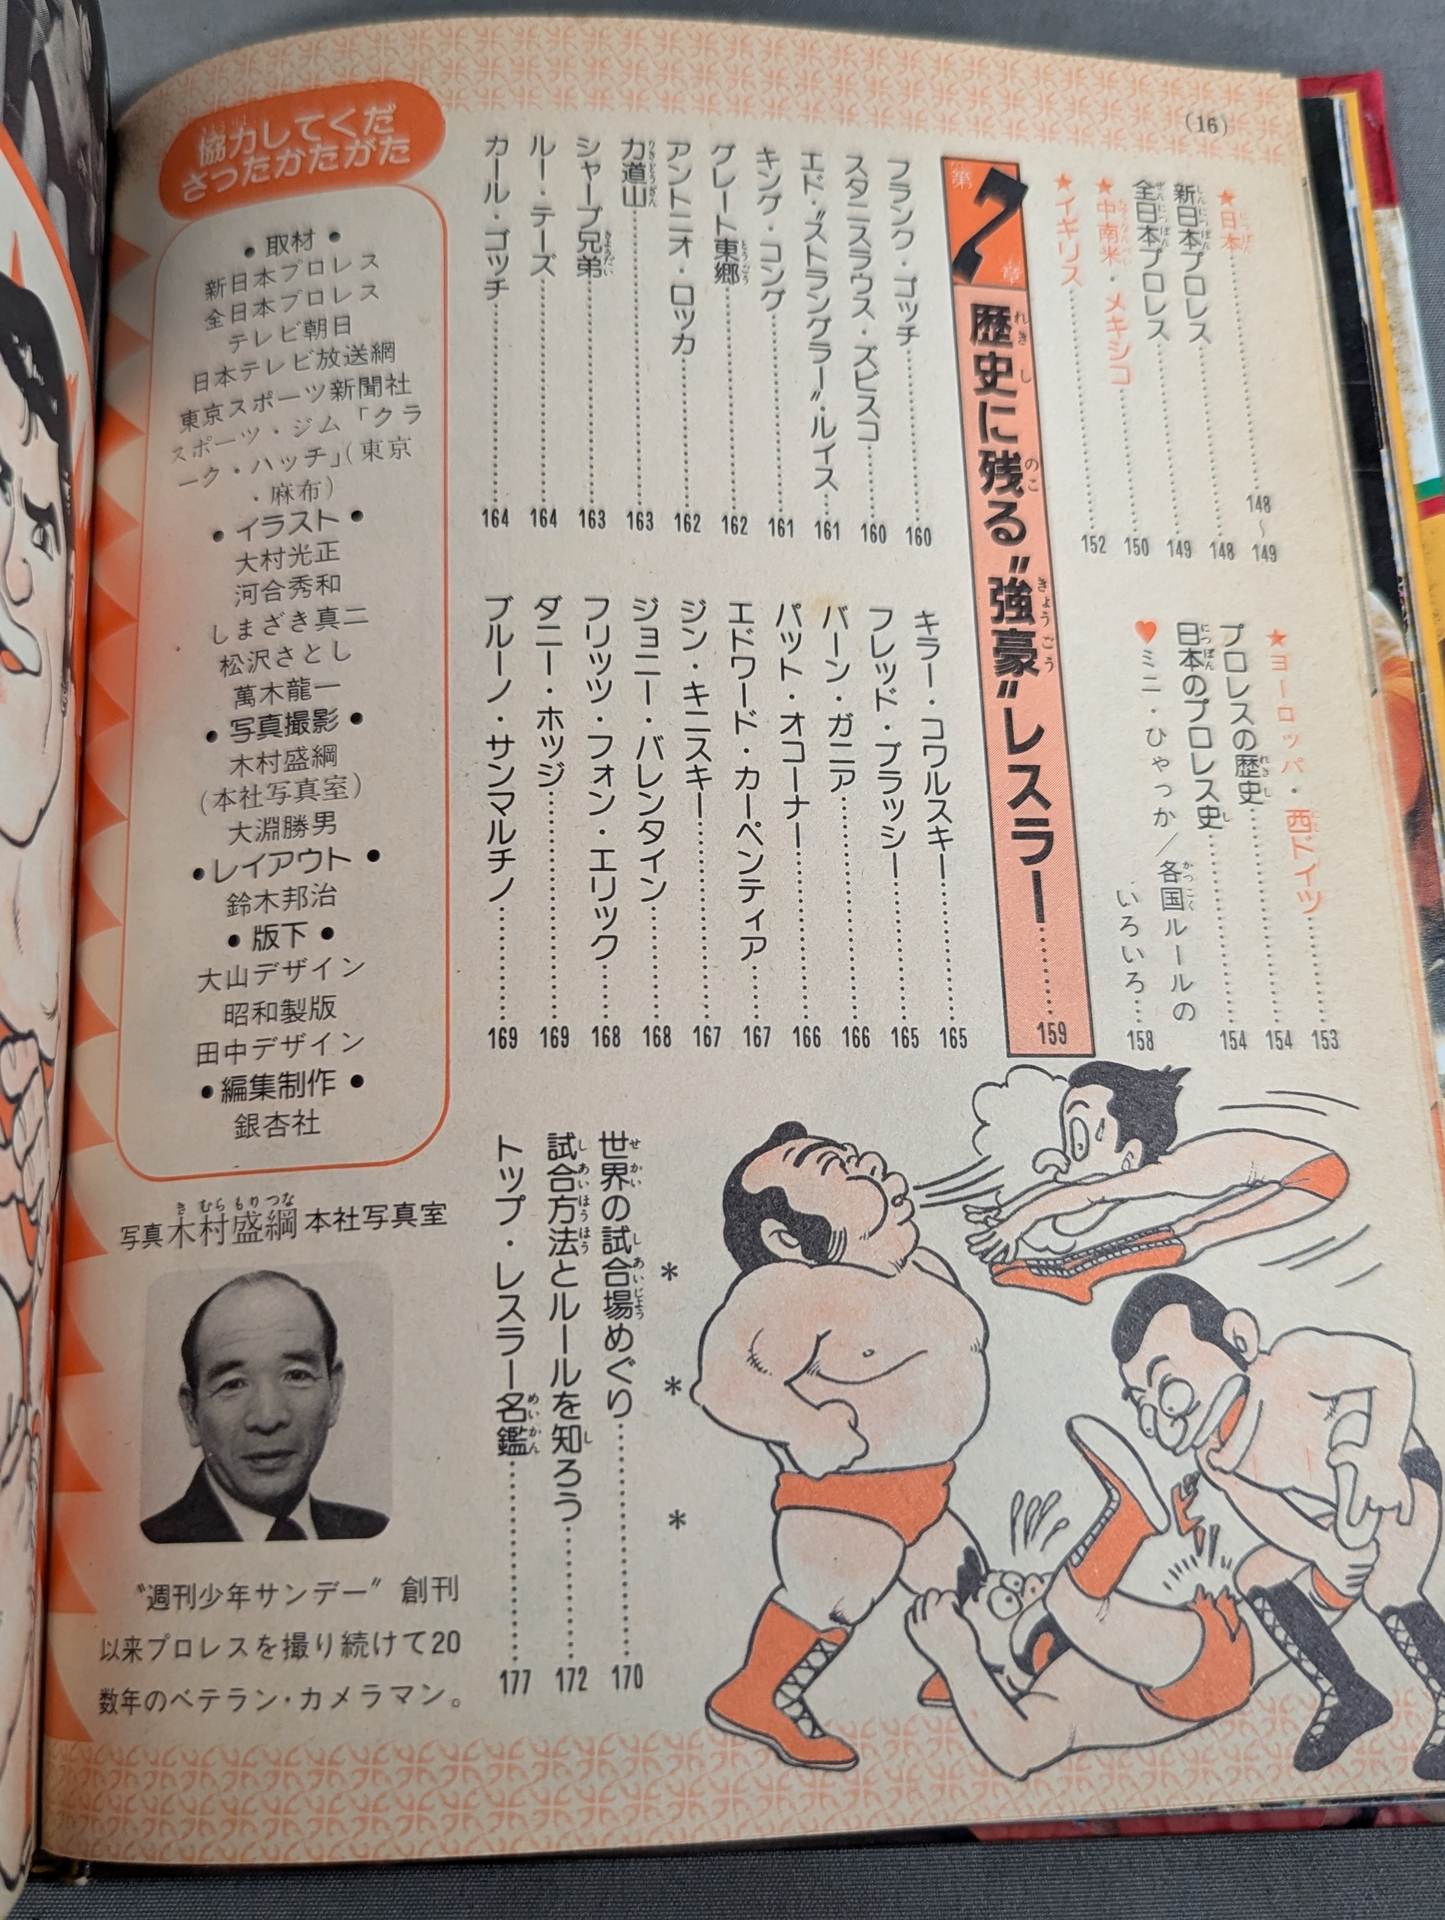 (16)
★日本……148〜149
新日本プロレス……148
全日本プロレス……149
★中南米・メキシコ……150
★イギリス……152
★ヨーロッパ・西ドイツ……153
プロレスの歴史……154
日本のプロレス史……154
♥ミニ・ひゃっか／各国ルールの
いろいろ……158
第7章 歴史に残る〝強豪〟レスラー……159
フランク・ゴッチ……160
スタニスラウス・ズビスコ……160
エド・〝ストラングラー〟・ルイス……161
キング・コング……161
グレート東郷……162
アントニオ・ロッカ……162
力道山……163
シャープ兄弟……163
ルー・テーズ……164
カール・ゴッチ……164
キラー・コワルスキー……165
フレッド・ブラッシー……165
バーン・ガニア……166
パット・オコーナー……166
エドワード・カーペンティア……167
ジン・キニスキー……167
ジョニー・バレンタイン……168
フリッツ・フォン・エリック……168
ダニー・ホッジ……169
ブルーノ・サンマルチノ……169
＊　＊　＊
世界の試合場めぐり……170
試合方法とルールを知ろう……172
トップ・レスラー名鑑……177
協力してくだ
さったかたがた
●取材●
新日本プロレス
全日本プロレス
テレビ朝日
日本テレビ放送網
東京スポーツ新聞社
スポーツ・ジム「クラ
ーク・ハッチ」（東京
・麻布）
●イラスト●
大村光正
河合秀和
しまざき真二
松沢さとし
萬木龍一
●写真撮影●
木村盛綱
（本社写真室）
大淵勝男
●レイアウト●
鈴木邦治
●版下●
大山デザイン
昭和製版
田中デザイン
●編集制作●
銀杏社
写真 木村盛綱 本社写真室
〝週刊少年サンデー〟創刊
以来プロレスを撮り続けて20
数年のベテラン・カメラマン。